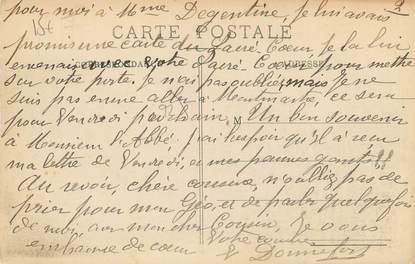 pour moi à Mme Degentine, je lui avais
15f
promis une carte du Sacré-Cœur, je la lui
CARTE POSTALE
CORRESPONDANCE ADRESSE
avec votre Sacré-Cœur pour mettre
sur votre porte. Je n'ai pas oublié, mais je ne
suis pas encore allée à Montmartre, ce sera
pour Vendredi prochain. Un bon souvenir
M
à Monsieur l'Abbé, j'ai l'espoir qu'il a reçu
ma lettre de Vendredi, et mes pauvres gants!!
Au revoir, chère cousine, n'oubliez pas de
prier pour mon Géo, et de parler quelquefois
de moi, avec mon cher Cousin, je vous
embrasse de cœur Votre cousine